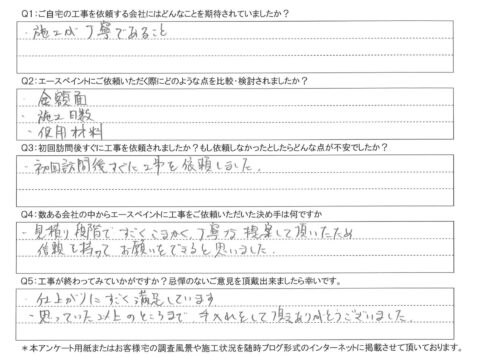 Q1：ご自宅の工事を依頼する会社にはどんなことを期待されていましたか？
・施工が丁寧であること
Q2：エースペイントにご依頼いただく際にどのような点を比較・検討されましたか？
・金額面
・施工日数
・使用材料
Q3：初回訪問後すぐに工事を依頼されましたか？もし依頼しなかったとしたらどんな点が不安でしたか？
・初回訪問後すぐに工事を依頼しました。
Q4：数ある会社の中からエースペイントに工事をご依頼いただいた決め手は何ですか
・見積り段階ですごくこまかく、丁寧な提案して頂いたため
信頼を持って お願いをできると思いました。
Q5：工事が終わってみていかがですか？忌憚のないご意見を頂戴出来ましたら幸いです。
・仕上がりにすごく満足しています
・思っていた以上のところまで、手入れをして頂きありがとうございました。
＊本アンケート用紙またはお客様宅の調査風景や施工状況を随時ブログ形式のインターネットに掲載させて頂いております。